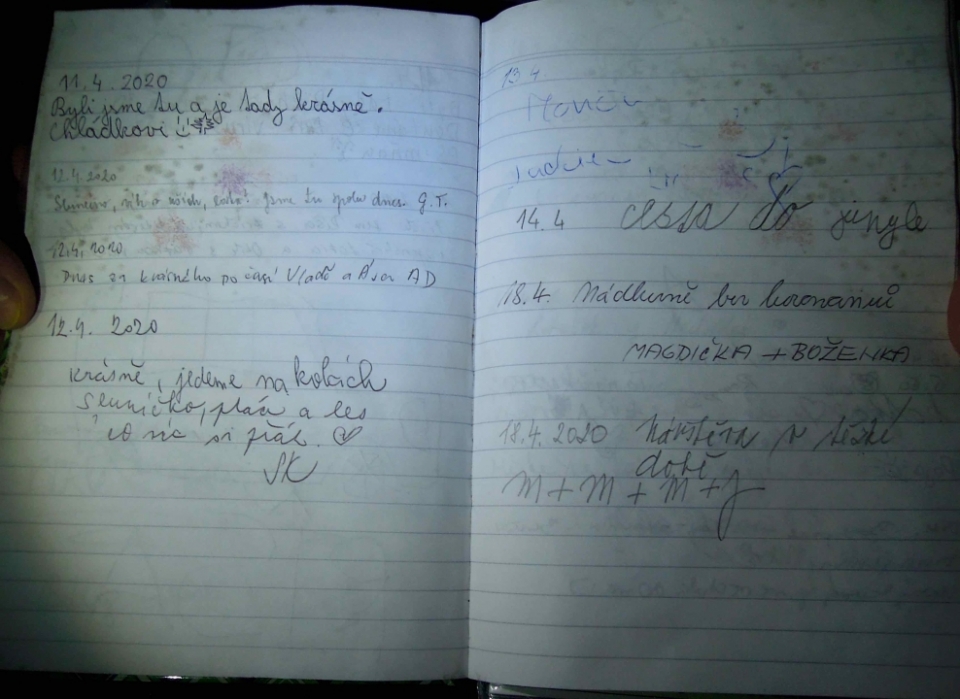 11.4. 2020
Byli jsme tu a je tady krásně.
Chládkovi
12.4.2020
jsme tu spolu dnes. G.T.
12.4. 2020
Dnes za krásného počasí Vladě a AD
12.4. 2020
Krásně, jedeme na kolách
Sluníčko, pláň a les
co víc si přát.
SK
13.4.
14.4 cesta do jungle
18.4. Nádherně bez koronaviru
MAGDIČKA + BOŽENKA
18.4.2020 Návštěva v těžké
době
M + M + M + J